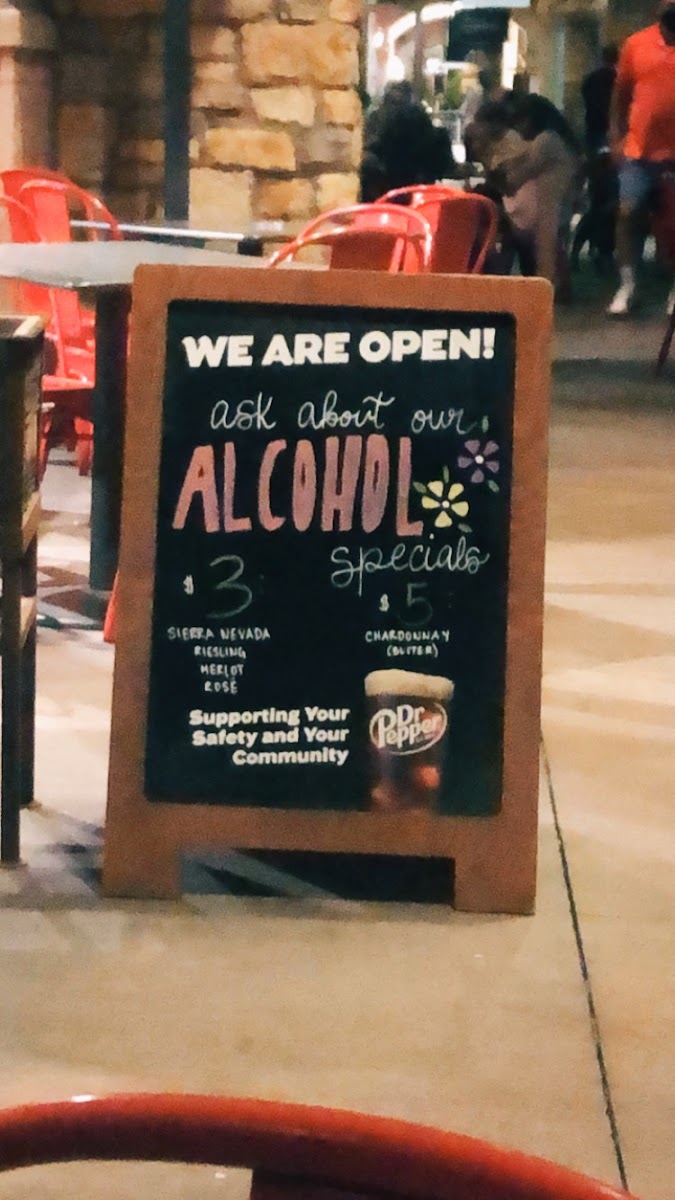 WE ARE OPEN!
ask about our
ALCOHOL
specials
$3
SIERRA NEVADA
RIESLING
MERLOT
ROSÉ
$5
CHARDONNAY
Supporting Your
Safety and Your
Community
Dr
Pepper